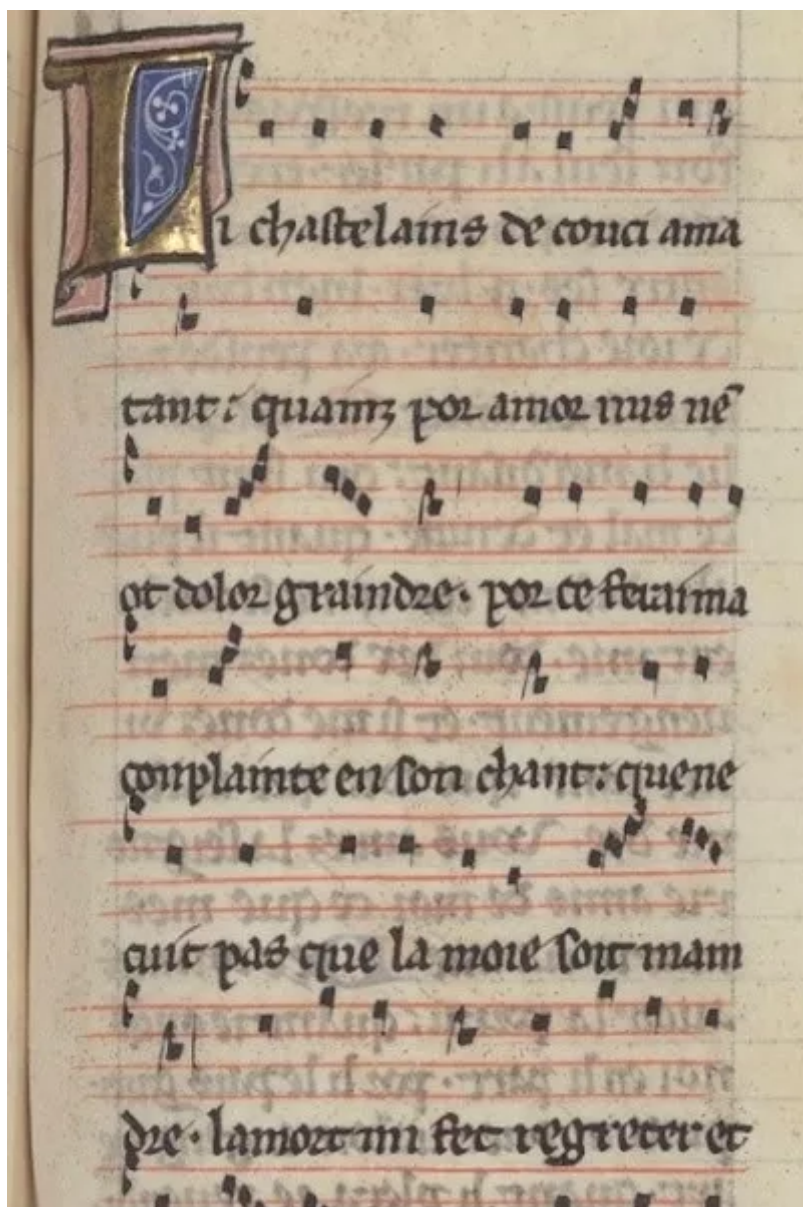 Li chastelains de couci ama
tant: quainz por amor nus nē
ot dolor graindre. por ce ferai ma
conplainte en son chant: que ne
cuit pas que la moie soit main
dre. la mort mi fet regreter et